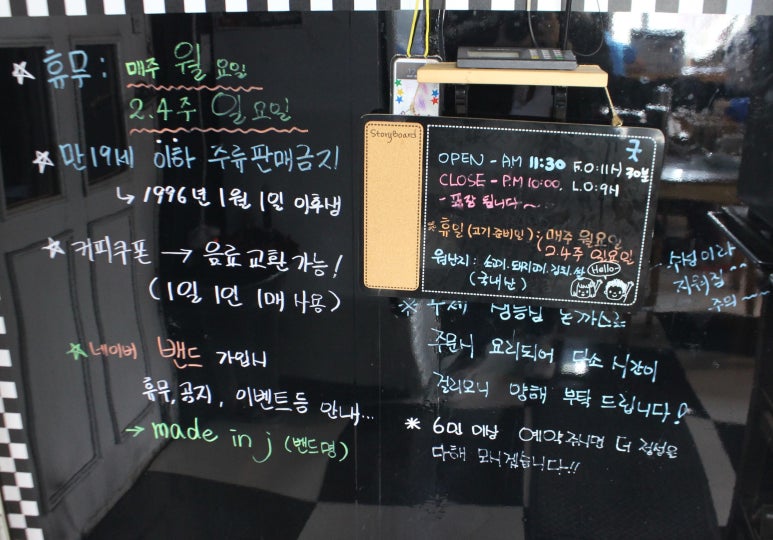 ☆ 휴무 : 매주 월요일
2.4주 일요일
☆ 만19세 이하 주류판매금지
↳ 1996년 1월 1일 이후생
☆ 커피쿠폰 → 음료 교환가능!
(1일 1인 1매 사용)
☆ 네이버 밴드 가입시
휴무, 공지, 이벤트등 안내...
→ made in j (밴드명)
StoryBoard
굿
OPEN - AM 11:30 F.O:11H 30분
CLOSE - P.M 10:00 L.O:9H
- 포장 됩니다~
* 휴일 (고기 준비일) : 매주 월요일
2.4주 일요일
원산지 : 소고기. 돼지고기. 김치. 쌀
(국내산)
Hello~
수성이라
지워짐^^
주의~~
* 수제 생등심 돈까스는
주문시 요리되어 다소 시간이
걸리오니 양해 부탁 드립니다!
* 6인 이상 예약주시면 더 정성을
다해 모시겠습니다!!